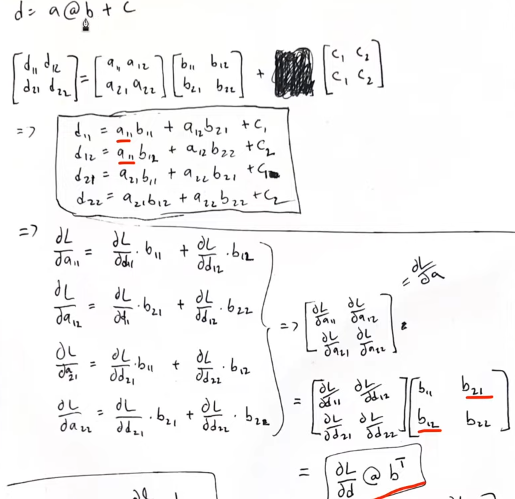 d = a @ b + c
[d₁₁ d₁₂; d₂₁ d₂₂] = [a₁₁ a₁₂; a₂₁ a₂₂] [b₁₁ b₁₂; b₂₁ b₂₂] + [c₁ c₂; c₁ c₂]
=> d₁₁ = a₁₁b₁₁ + a₁₂b₂₁ + c₁
d₁₂ = a₁₁b₁₂ + a₁₂b₂₂ + c₂
d₂₁ = a₂₁b₁₁ + a₂₂b₂₁ + c₁
d₂₂ = a₂₁b₁₂ + a₂₂b₂₂ + c₂
=> ∂L/∂a₁₁ = ∂L/∂d₁₁ · b₁₁ + ∂L/∂d₁₂ · b₁₂
∂L/∂a₁₂ = ∂L/∂d₁ · b₂₁ + ∂L/∂d₁₂ · b₂₂
∂L/∂a₂₁ = ∂L/∂d₂₁ · b₁₁ + ∂L/∂d₂₂ · b₁₂
∂L/∂a₂₂ = ∂L/∂d₂₁ · b₂₁ + ∂L/∂d₂₂ · b₂₂
= ∂L/∂a
=> [∂L/∂a₁₁ ∂L/∂a₁₂; ∂L/∂a₂₁ ∂L/∂a₂₂]
= [∂L/∂d₁₁ ∂L/∂d₁₂; ∂L/∂d₂₁ ∂L/∂d₂₂] [b₁₁ b₂₁; b₁₂ b₂₂]
= ∂L/∂d @ bᵀ